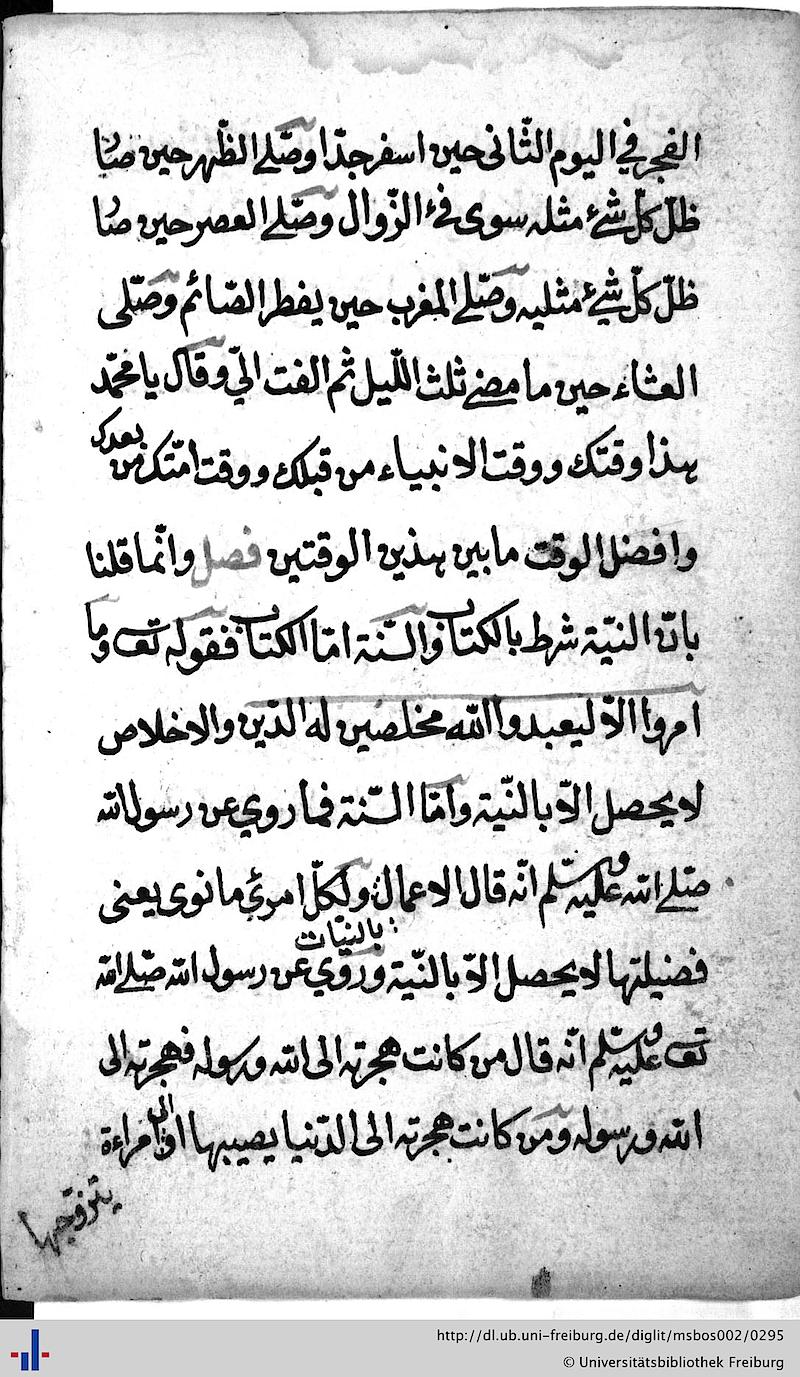 الفجر في اليوم الثّانى حين اسفر جدّا وصّلے الظّهر حين صار
ظلّ كلّ شئ مثله سوى فئ الزّوال وصّلے العصر حين صار
ظلّ كلّ شيئ مثليه وصّلے المغرب حين يفطر الصّائم وصّلى
العشاء حين ما مضے ثلث اللّيل ثم الفت اليّ وقال يا محمّد
هذا وقتك ووقت الانبياء من قبلك ووقت امّتك من بعدك
وافضل الوقت ما بين هذين الوقتين فصل وانّما قلنا
بانّ النيّة شرط بالكتاب والسّنة امّا الكتاب فقوله تعـ وما
امروا الّا ليعبدوا الله مخلصين له الدّين والاخلاص
لا يحصل الّا بالنّية وامّا السّنة فما روي عن رسول الله
صّلے الله عليه وسّلم انّه قال الاعمال ولكلّ امرئ ما نوى يعنى
بالنيّات
فضيلتها لا يحصل الّا بالنّية وروي عن رسول الله صّلے الله
تعـ عليه وسّلم انّه قال من كانت هجرته الى الله ورسوله فهجرته الى
الله ورسوله ومن كانت هجرته الى الدّنيا يصيبها او الى امراءة
يتزوّجها
http://dl.ub.uni-freiburg.de/diglit/msbos002/0295
© Universitätsbibliothek Freiburg